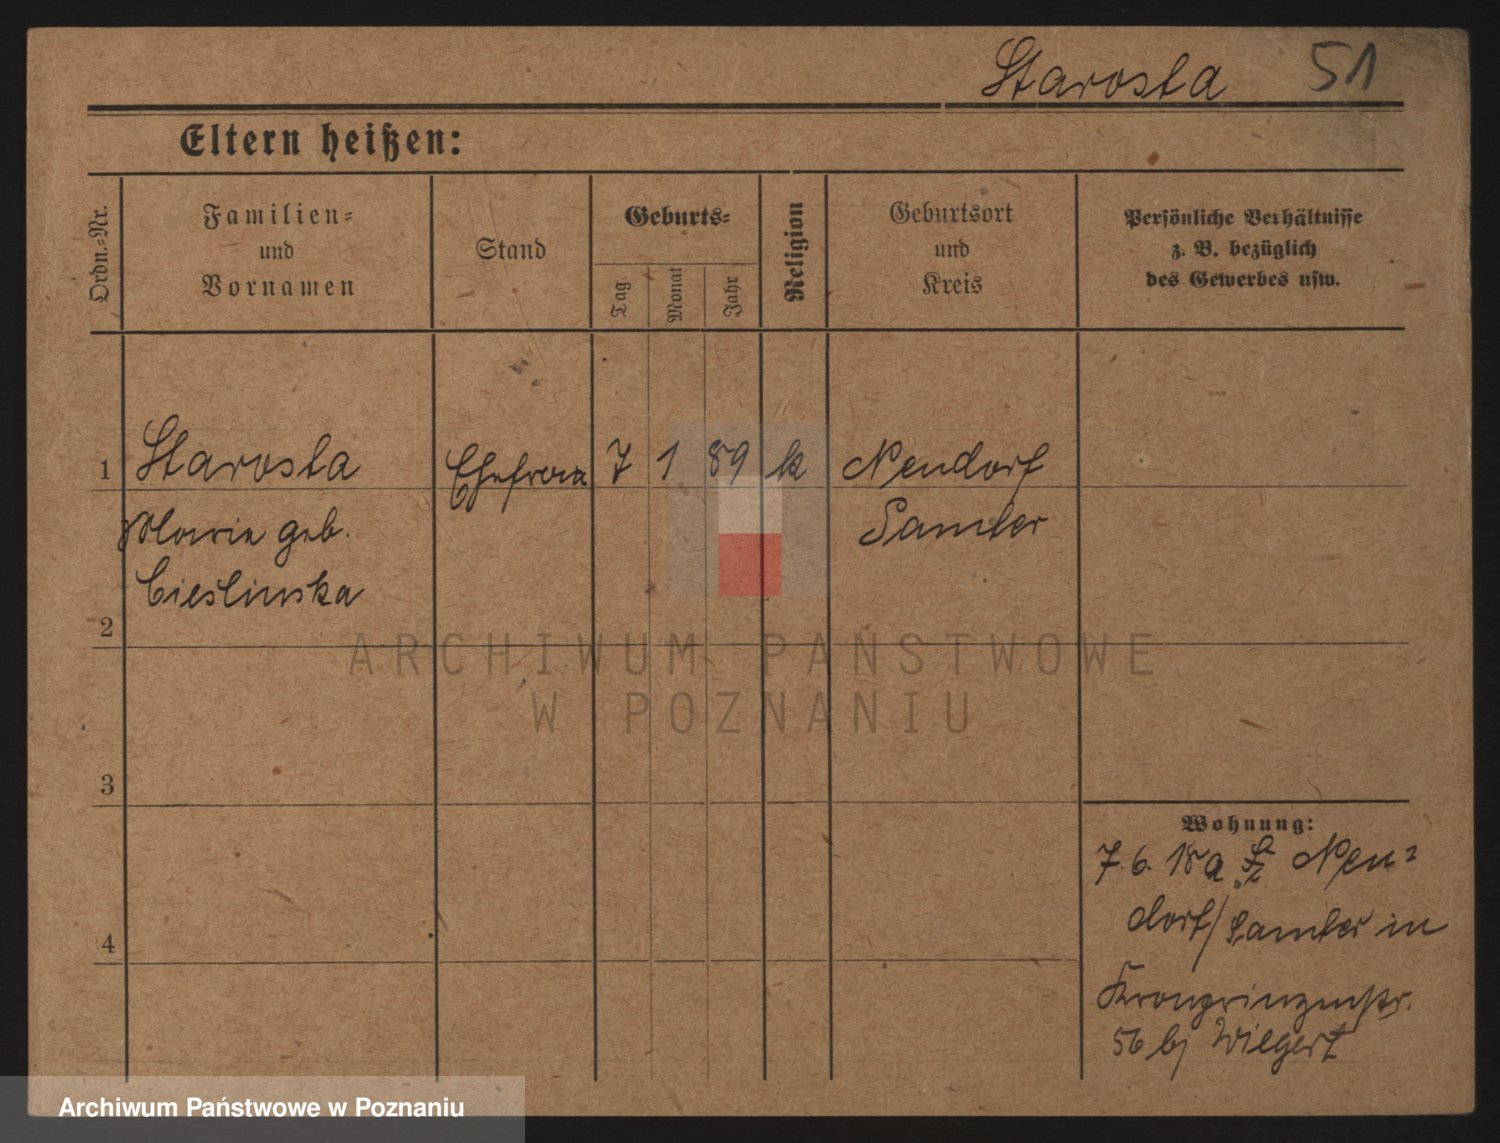 Starosta 51
Eltern heißen:
Ordn.-Nr.
Familien-
und
Vornamen
Stand
Geburts-
Tag
Monat
Jahr
Religion
Geburtsort
und
Kreis
Persönliche Verhältnisse
z. B. bezüglich
des Gewerbes usw.
1 Starosta Ehefrau 7 1 89 k Neudorf
Marie geb. Samter
Cieslinska
2
3
4
Wohnung:
7.6.18 a Neu-
dorf/Samter in
Kronprinzenstr.
56 bj Wiegert
ARCHIWUM PAŃSTWOWE
W POZNANIU
Archiwum Państwowe w Poznaniu